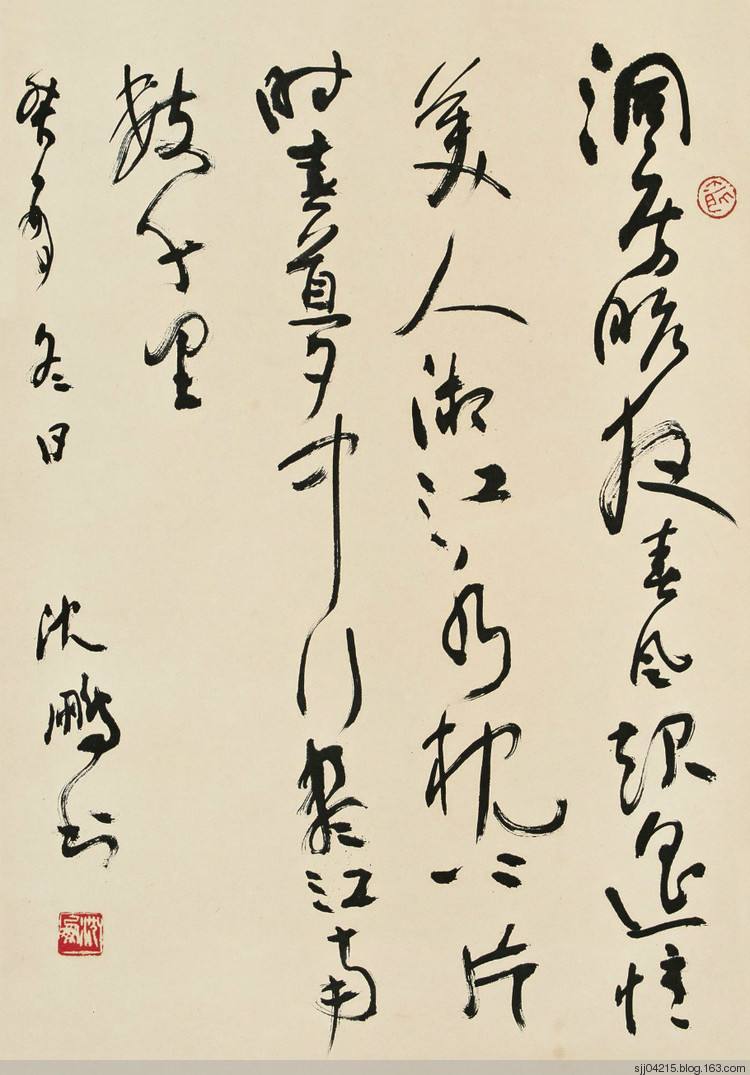 洞房昨夜春風起遥憶
美人湘江水枕上片
時春夢中行盡江南
數千里
癸酉冬日 沈鵬書
sjj04215.blog.163.com